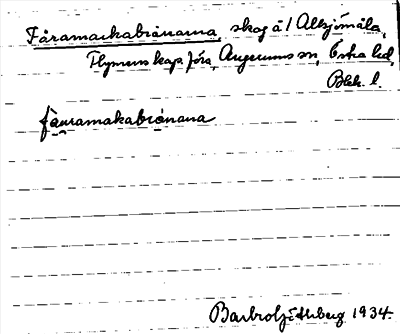 Fåramarkabrånarna, skog å / Allsjömåla,
Flymens kap.förs, Augerums sn, Östra hd,
Blek. l.
fåuramakabrånana
Barbro Göthberg 1934.